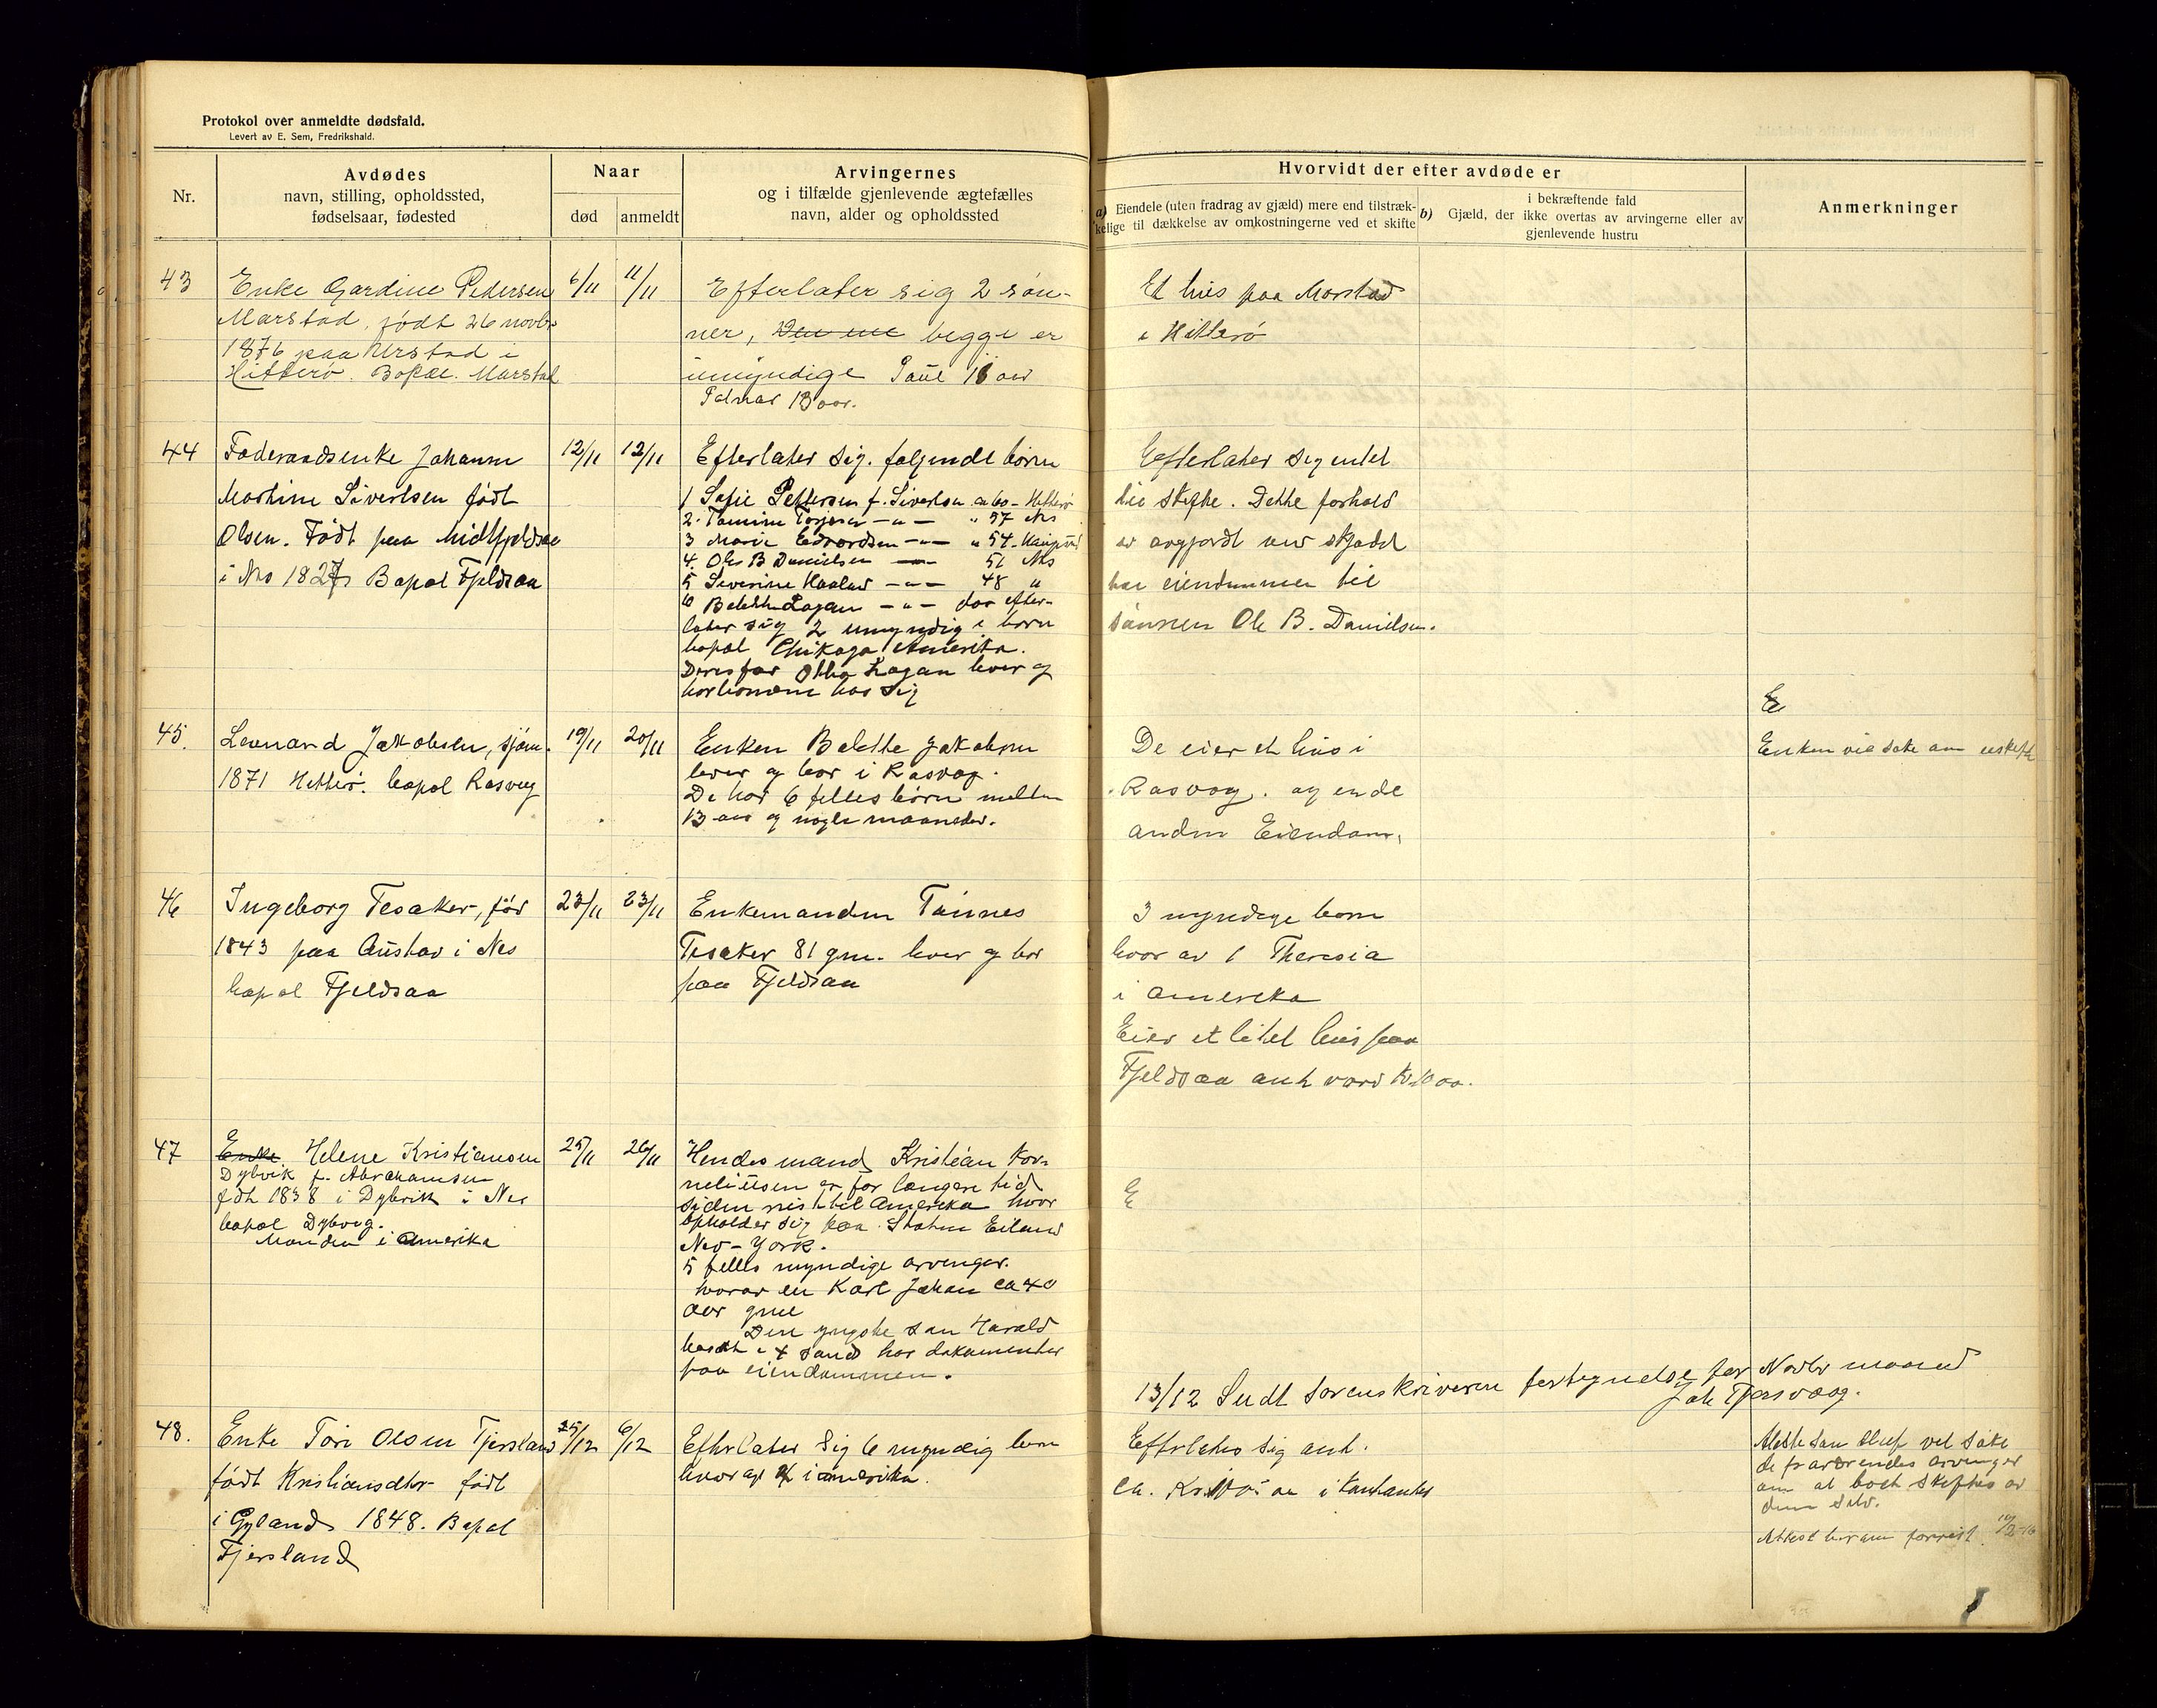 Protokol over anmeldte dødsfald.
Levert av E. Sem, Fredrikshald.
Nr.
Avdødes
navn, stilling, opholdssted,
fødselsaar, fødested
Naar
død
anmeldt
Arvingernes
og i tilfælde gjenlevende ægtefælles
navn, alder og opholdssted
Hvorvidt der efter avdøde er
a) Eiendele (uten fradrag av gjæld) mere end tilstræk-
kelige til dækkelse av omkostningerne ved et skifte
b) Gjæld, der
i bekræftende fald
ikke overtas av arvingerne eller av
gjenlevende hustru
Anmerkninger
43
Enke Gardine Pedersen
Marstad, født 26 novbr
1876 paa
i
Hitterø. Bopæl. Marstad
6/11
11/11
Efterlater sig 2 søn-
ner, Den ene begge er
umyndige Paul 18 aar
13 aar.
Et hus paa Marstad
i Hitterø
44
Føderaadsenke Johanne
Martine Sivertsen født
Olsen. Født paa Midtfjeldsaa
i Nes 1827 Bopæl Fjeldsaa
12/11
12/11
Efterlater sig. følgende børn
1 Sofie Pettersen f. Sivertsen ca 60 - Hitterø
2. Tomine Torjesen -"- " 57 Nes
3 Marie Edvardsen -"- " 54
4. Ole B Danielsen 51 Nes
5 Severine Haaland -"- 48 "
6 Logan -"- død efter-
later sig 2 umyndige børn
bopæl Chikago Amerika.
Deres far Otto Logan lever og
har børnene hos sig
Efterlater sig intet
til skifte. Dette forhold
er avgjordt ved skjødet
har eiendommen til
sønnen Ole B. Danielsen.
45.
Leonard Jakobsen, sjøm.
1871 Hitterø. bopæl Rasvåg
19/11
20/11
Enken Jakobsen
lever og bor i Rasvåg.
De har 6 felles børn mellem
13 aar og nogle maaneder.
De eier et hus i
Rasvog. og ende
anden Eiendom.
E
Enken vil søke om uskifte
46
Ingeborg Tesaker, født
1843 paa Austad i Nes
bopæl Fjeldsaa
23/11
23/11
Enkemanden Tønnes
Tesaker 81 gml. lever og bor
paa Fjeldsaa
3 myndige børn
hvor av 1 Theresia
i Amerika
Eier et litet hus paa
Fjeldsaa ant. værd
47
Enke Helene Kristiansen
Dybvik f. Abrahamsen
født 1838 i Dybvik i Nes
bopæl Dybvig.
Manden i Amerika
25/11
26/11
Hendes mand Kristian Kor-
neliusen er for længere tid
siden reist til Amerika hvor
opholder sig paa Eiland
New-York.
5 felles myndige arvinger.
hvorav en Karl Johan ca 40
aar gml
Den yngste søn Harald
bosat i X sand har dokumenter
paa eiendommen.
E
13/12 Sendt sorenskriveren fortegnelse for Novbr maaned
48.
Enke Tori Olsen Tjersland
født Kristiansdtr født
i Gyland 1848. Bopæl
Tjersland
5/12
6/12
Efterlater sig 6 myndig børn
hvorav i amerika.
Efterlater sig ant.
ca. Kr. i kontanter
Ældste søn vil søke
de fraværendes arvinger
om at boet skiftes av
dem selv.